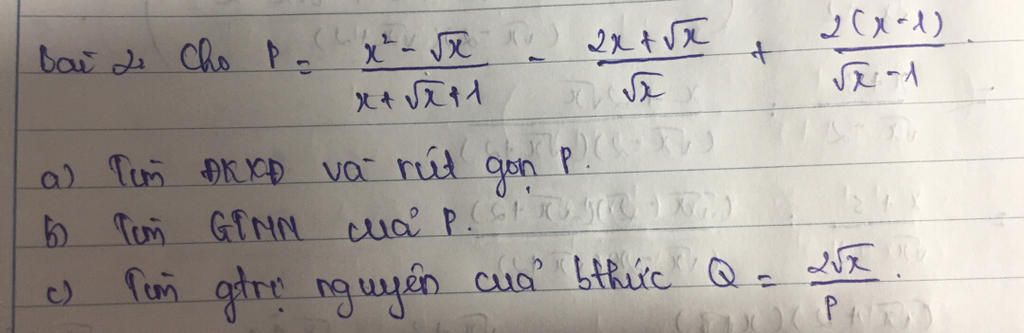 bài 2: Cho P = (x² - √x)/(x + √x + 1) - (2x + √x)/√x + 2(x - 1)/(√x - 1).
a) Tìm ĐKXĐ và rút gọn P.
b) Tìm GTNN của P.
c) Tìm gtrị nguyên của bthức Q = 2√x/P.